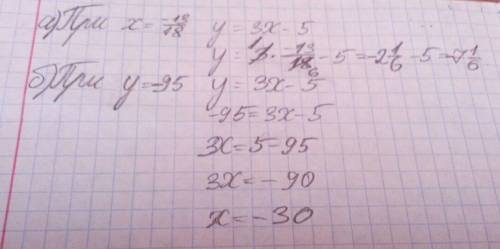 а) При x = -13/18 y = 3x - 5
y = 3 · -13/18 - 5 = -2 1/6 - 5 = -7 1/6
б) При y = -95 y = 3x - 5
-95 = 3x - 5
3x = 5 - 95
3x = -90
x = -30